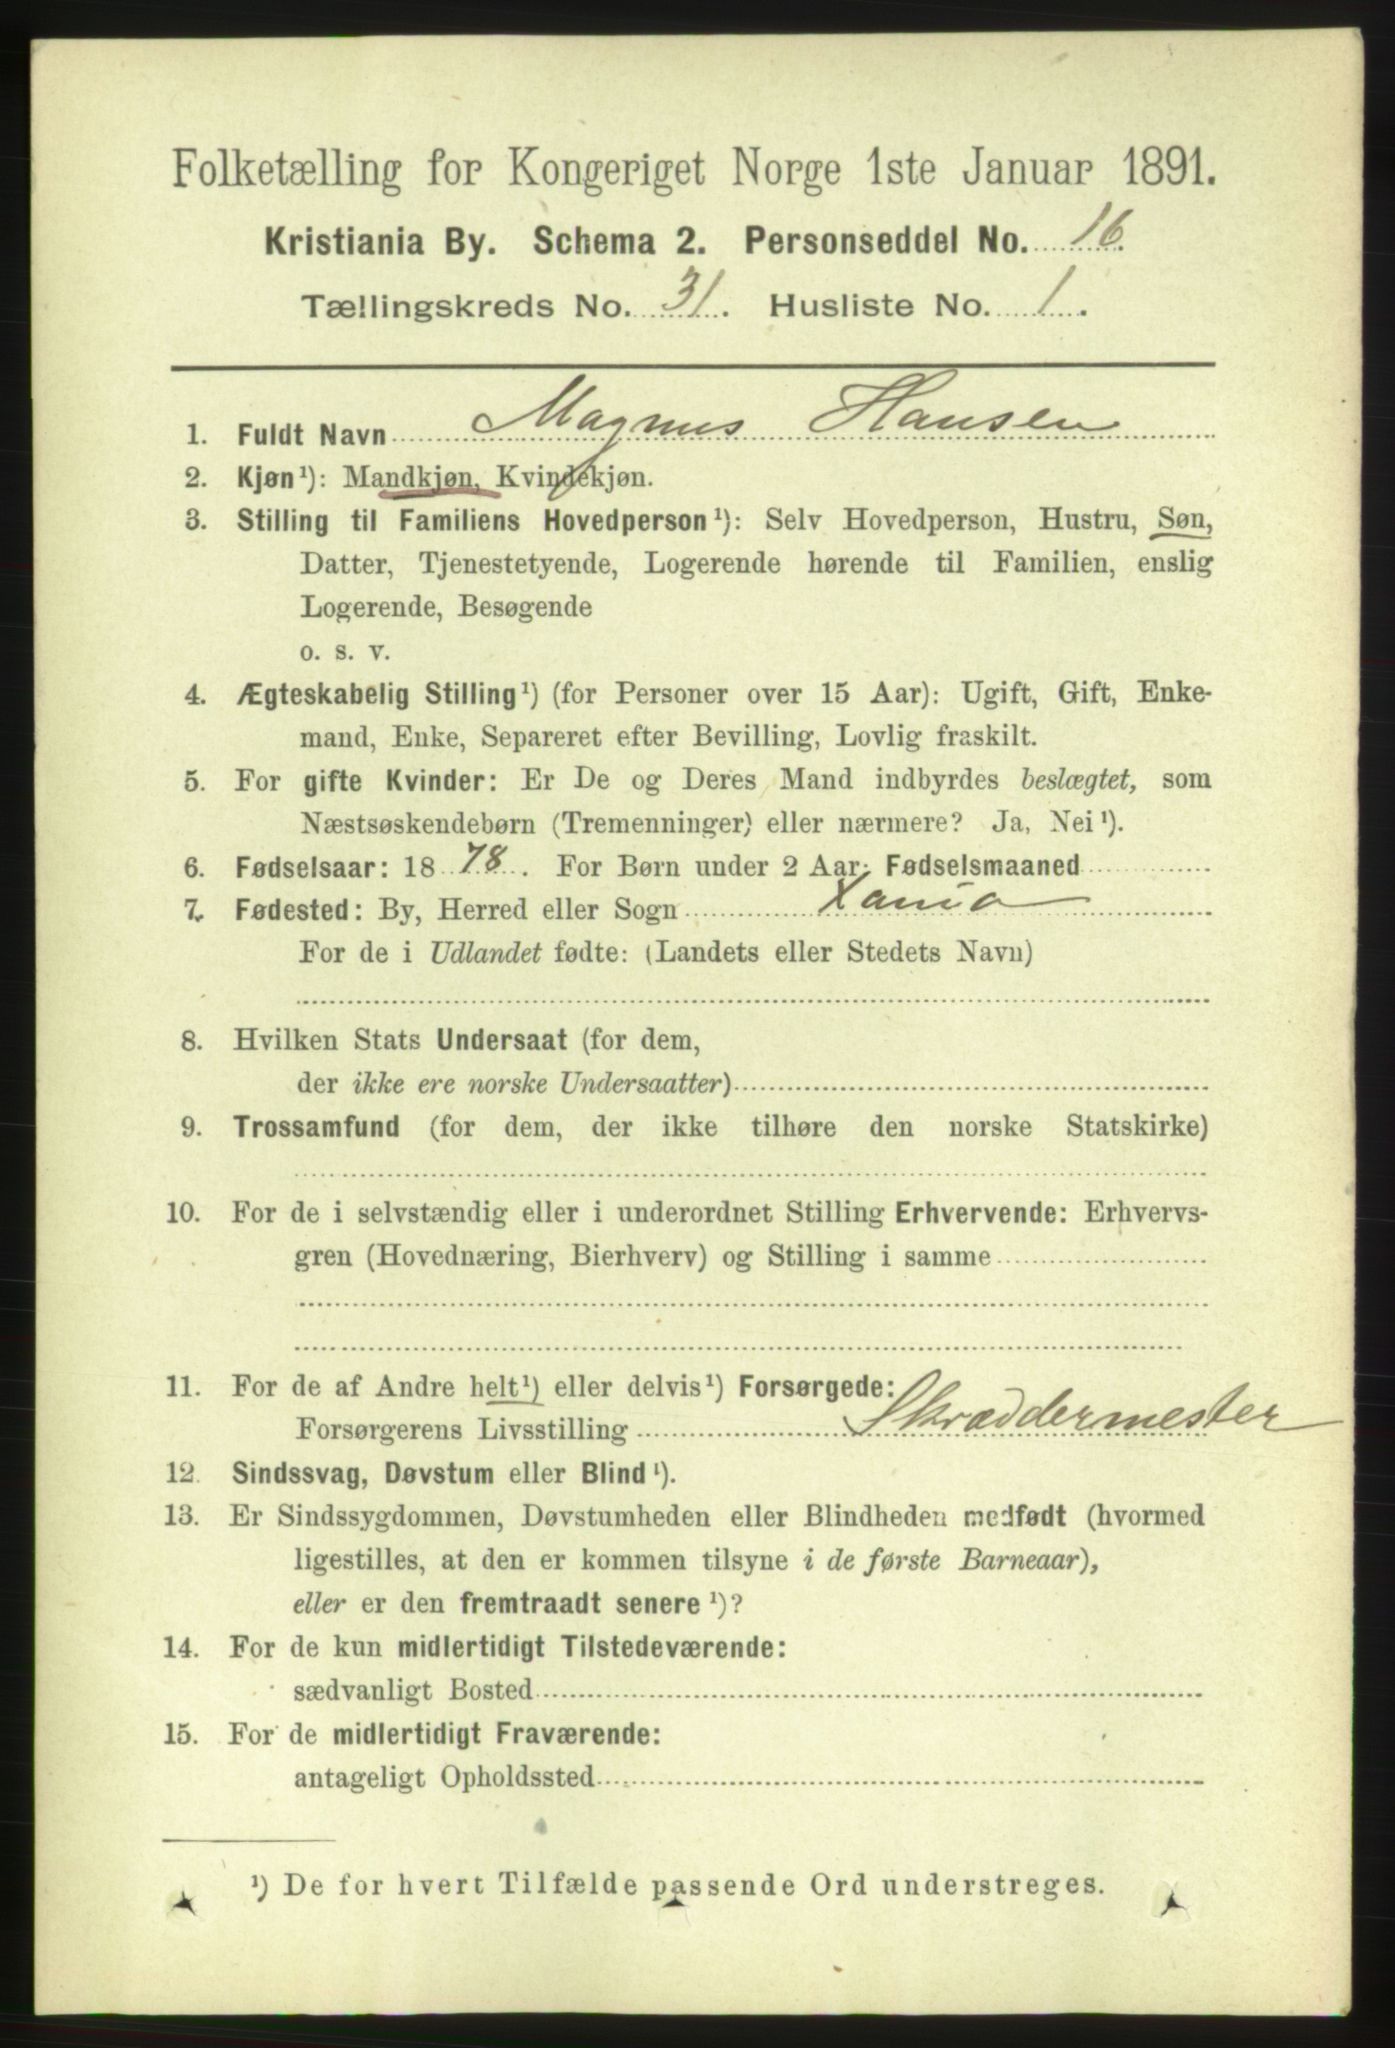 Folketælling for Kongeriget Norge 1ste Januar 1891.
Kristiania By. Schema 2. Personseddel No. 16.
Tællingskreds No. 31. Husliste No. 1.
1. Fuldt Navn Magnus Hansen
2. Kjøn¹): Mandkjøn, Kvindekjøn.
3. Stilling til Familiens Hovedperson¹): Selv Hovedperson, Hustru, Søn,
Datter, Tjenestetyende, Logerende hørende til Familien, enslig
Logerende, Besøgende
o. s. v.
4. Ægteskabelig Stilling¹) (for Personer over 15 Aar): Ugift, Gift, Enke-
mand, Enke, Separeret efter Bevilling, Lovlig fraskilt.
5. For gifte Kvinder: Er De og Deres Mand indbyrdes beslægtet, som
Næstsøskendebørn (Tremenninger) eller nærmere? Ja, Nei¹).
6. Fødselsaar: 1878. For Børn under 2 Aar: Fødselsmaaned
7. Fødested: By, Herred eller Sogn Xania
For de i Udlandet fødte: (Landets eller Stedets Navn)
8. Hvilken Stats Undersaat (for dem,
der ikke ere norske Undersaatter)
9. Trossamfund (for dem, der ikke tilhøre den norske Statskirke)
10. For de i selvstændig eller i underordnet Stilling Erhvervende: Erhvervs-
gren (Hovednæring, Bierhverv) og Stilling i samme
11. For de af Andre helt¹) eller delvis¹) Forsørgede:
Forsørgerens Livsstilling Skræddermester
12. Sindssvag, Døvstum eller Blind¹).
13. Er Sindssygdommen, Døvstumheden eller Blindheden medfødt (hvormed
ligestilles, at den er kommen tilsyne i de første Barneaar),
eller er den fremtraadt senere¹)?
14. For de kun midlertidigt Tilstedeværende:
sædvanligt Bosted
15. For de midlertidigt Fraværende:
antageligt Opholdssted
¹) De for hvert Tilfælde passende Ord understreges.